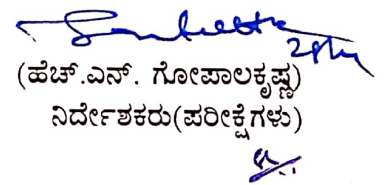 (ಹೆಚ್.ಎನ್. ಗೋಪಾಲಕೃಷ್ಣ)
ನಿರ್ದೇಶಕರು(ಪರೀಕ್ಷೆಗಳು)